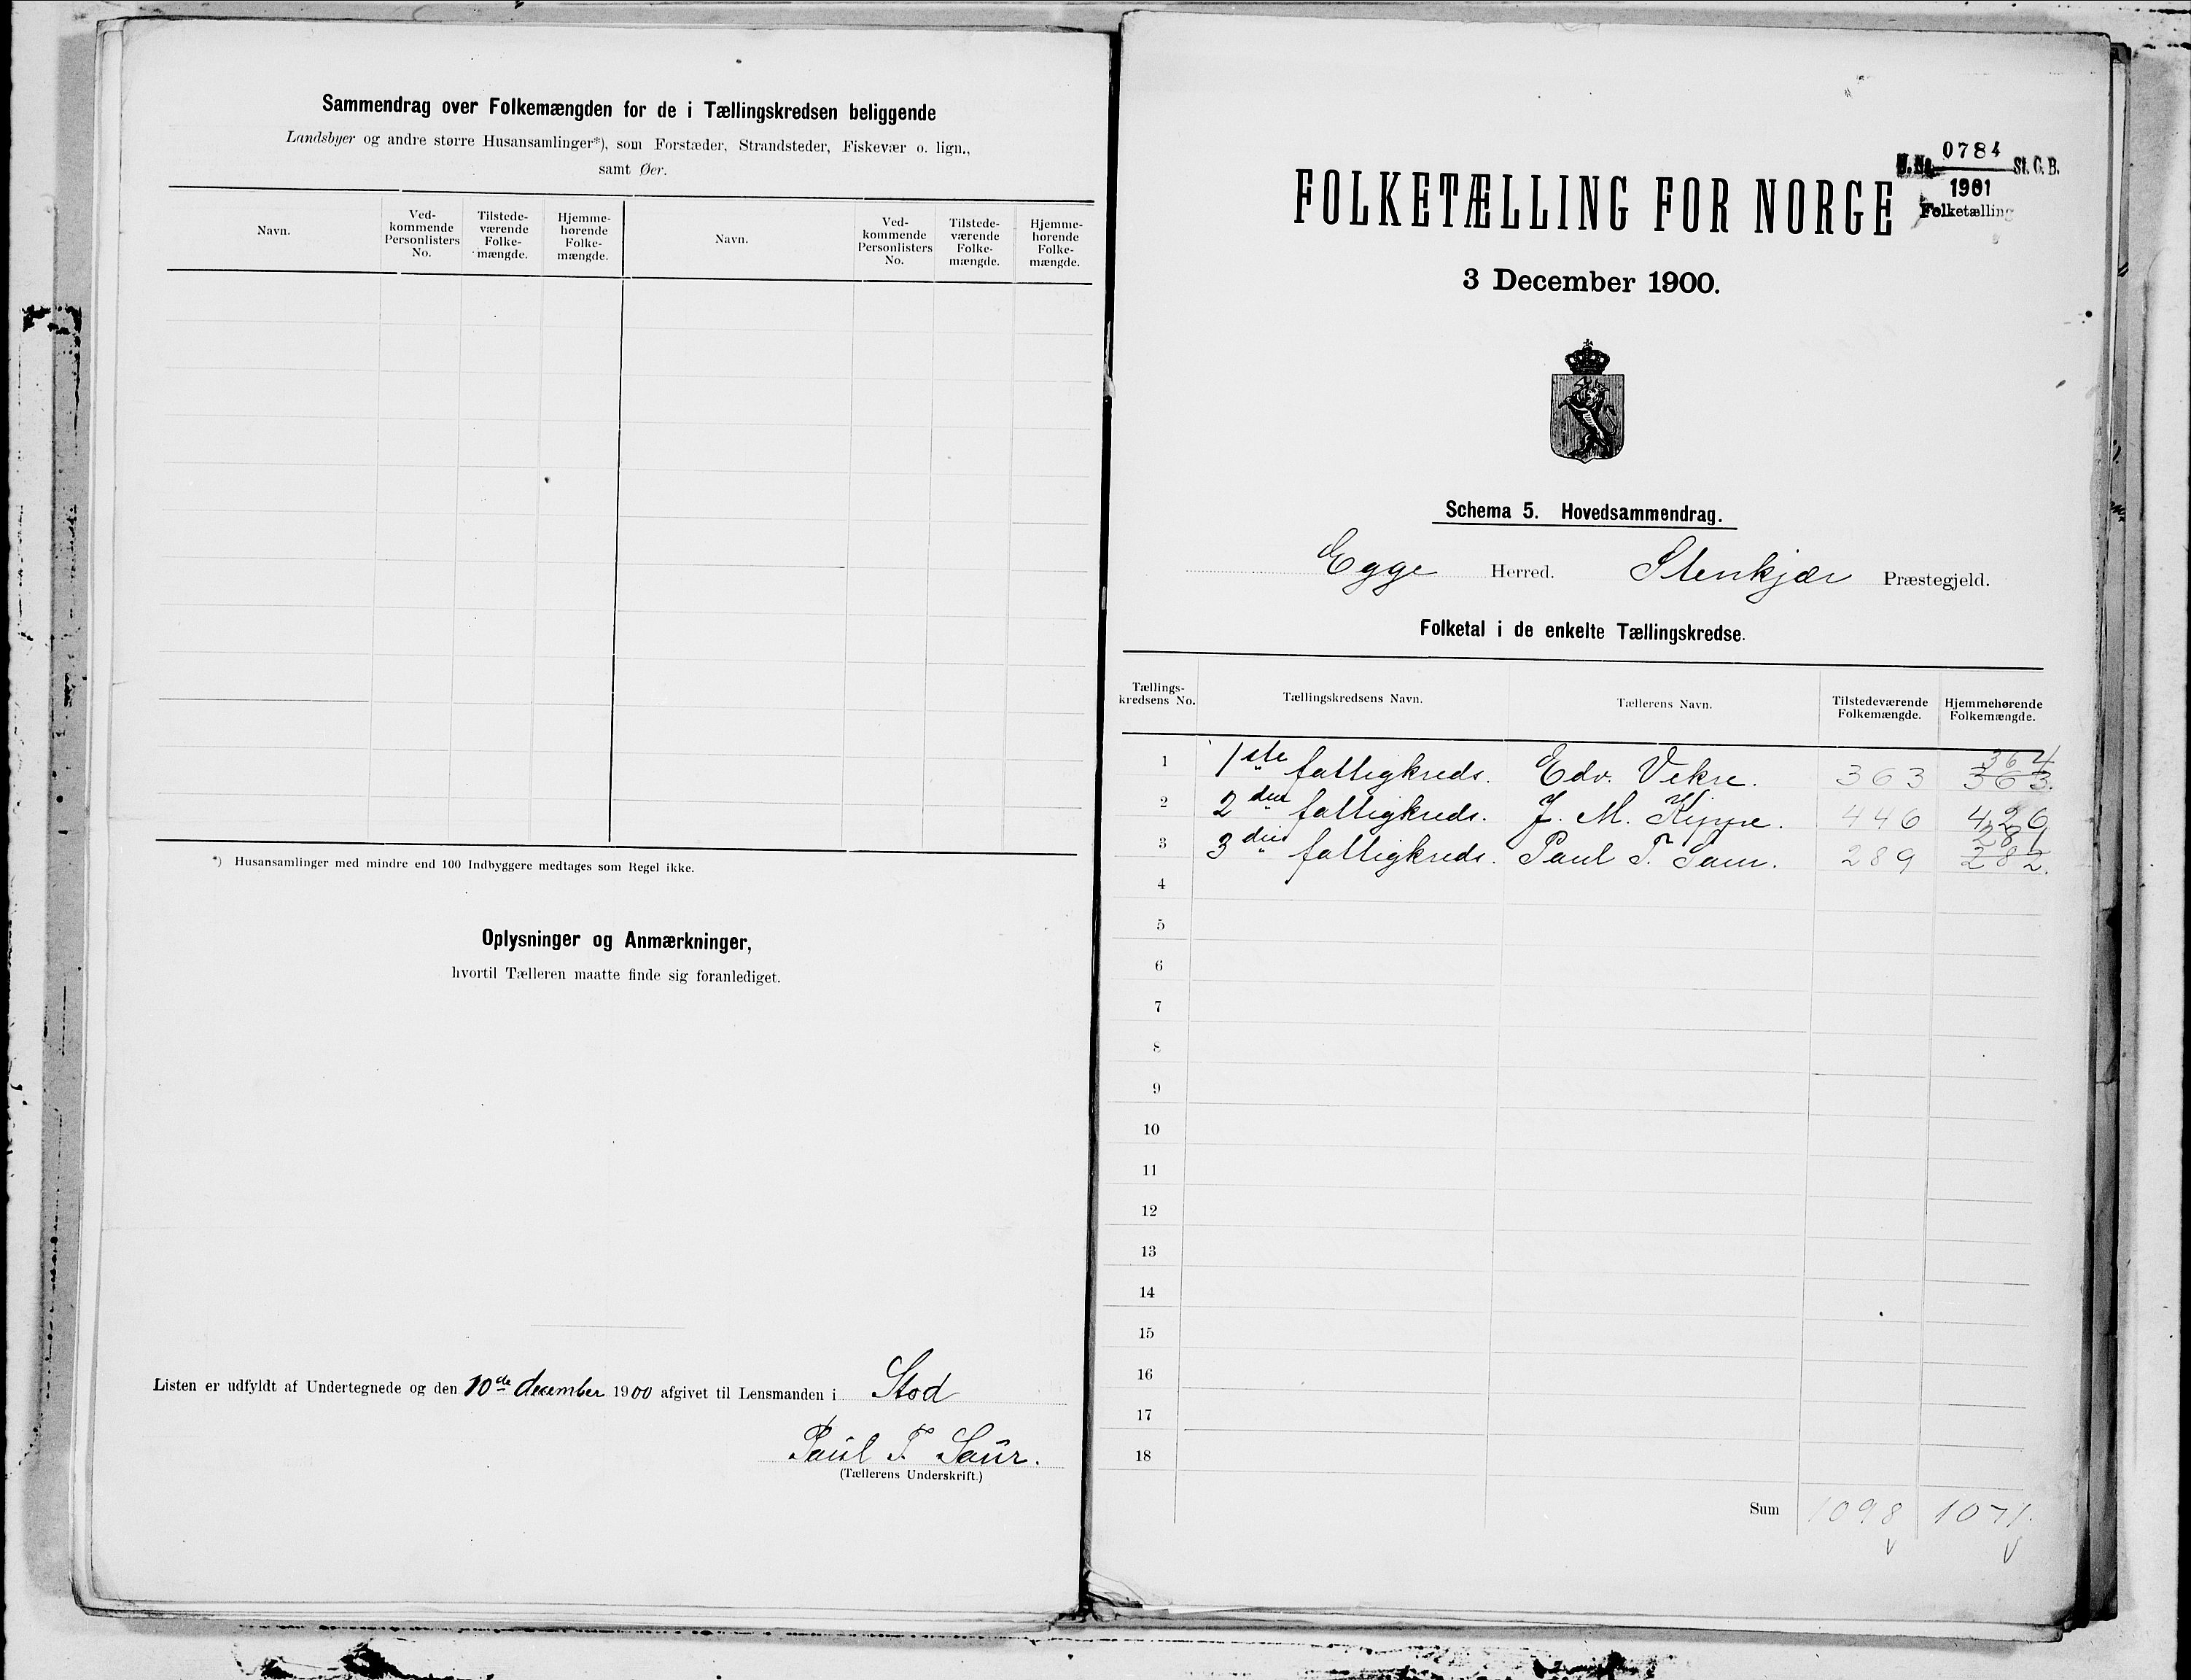 Sammendrag over Folkemængden for de i Tællingskredsen beliggende
Landsbyer og andre større Husansamlinger*), som Forstæder, Strandsteder, Fiskevær o. lign.,
samt Øer.
Navn. Ved-kommende Personlisters No. Tilstede-værende Folke-mængde. Hjemme-hørende Folke-mængde. Navn. Ved-kommende Personlisters No. Tilstede-værende Folke-mængde. Hjemme-hørende Folke-mængde.
*) Husansamlinger med mindre end 100 Indbyggere medtages som Regel ikke.
Oplysninger og Anmærkninger,
hvortil Tælleren maatte finde sig foranlediget.
Listen er udfyldt af Undertegnede og den 10de december 1900 afgivet til Lensmanden i Stod
Paul T. Saur.
(Tællerens Underskrift.)
J. No. 0784 St. C. B.
1901
Folketælling
FOLKETÆLLING FOR NORGE
3 December 1900.
Schema 5. Hovedsammendrag.
Egge Herred. Stenkjær Præstegjeld.
Folketal i de enkelte Tællingskredse.
Tællings-kredsens No. Tællingskredsens Navn. Tællerens Navn. Tilstedeværende Folkemængde. Hjemmehørende Folkemængde.
364
1 1ste fattigkreds. Edv. Vekre. 363 363.
2 2den fattigkreds. J. M. 446 426
281
3 3die fattigkreds. Paul T. Saur. 289 282.
4
5
6
7
8
9
10
11
12
13
14
15
16
17
18
Sum 1098 1071.